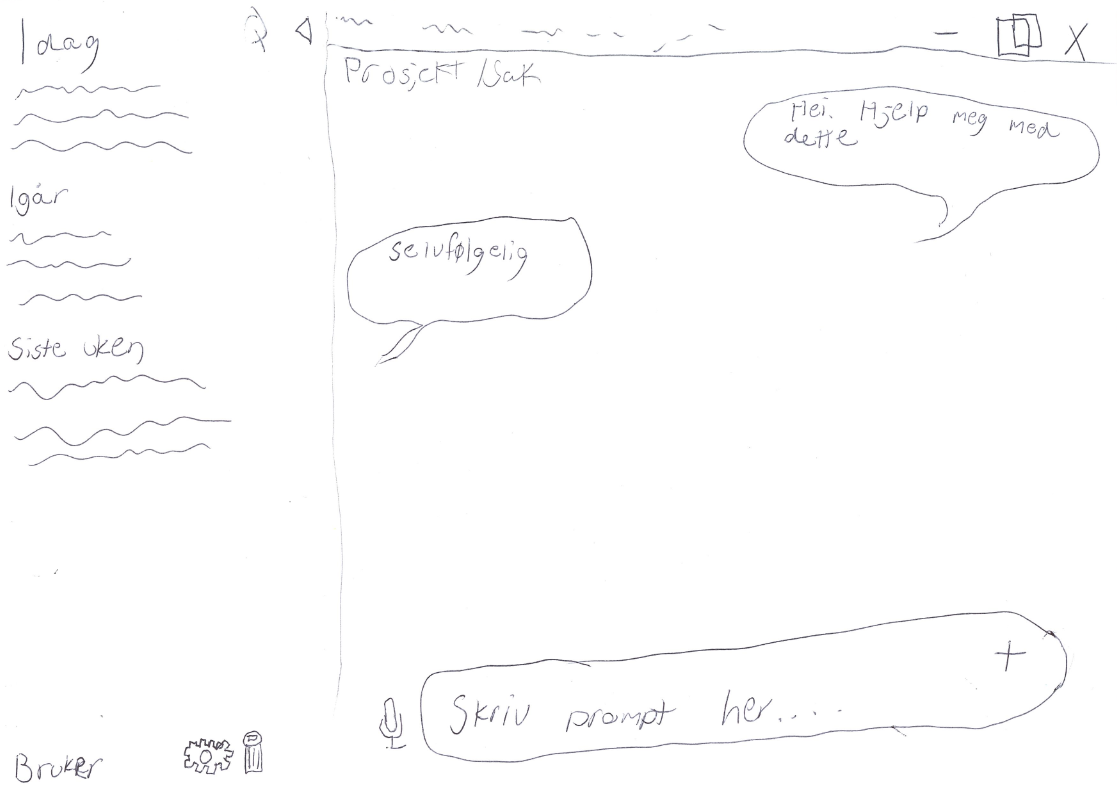 Idag
Igår
Siste uken
Bruker
Prosjekt /Sak
Hei. Hjelp meg med
dette
selvfølgelig
Skriv prompt her....